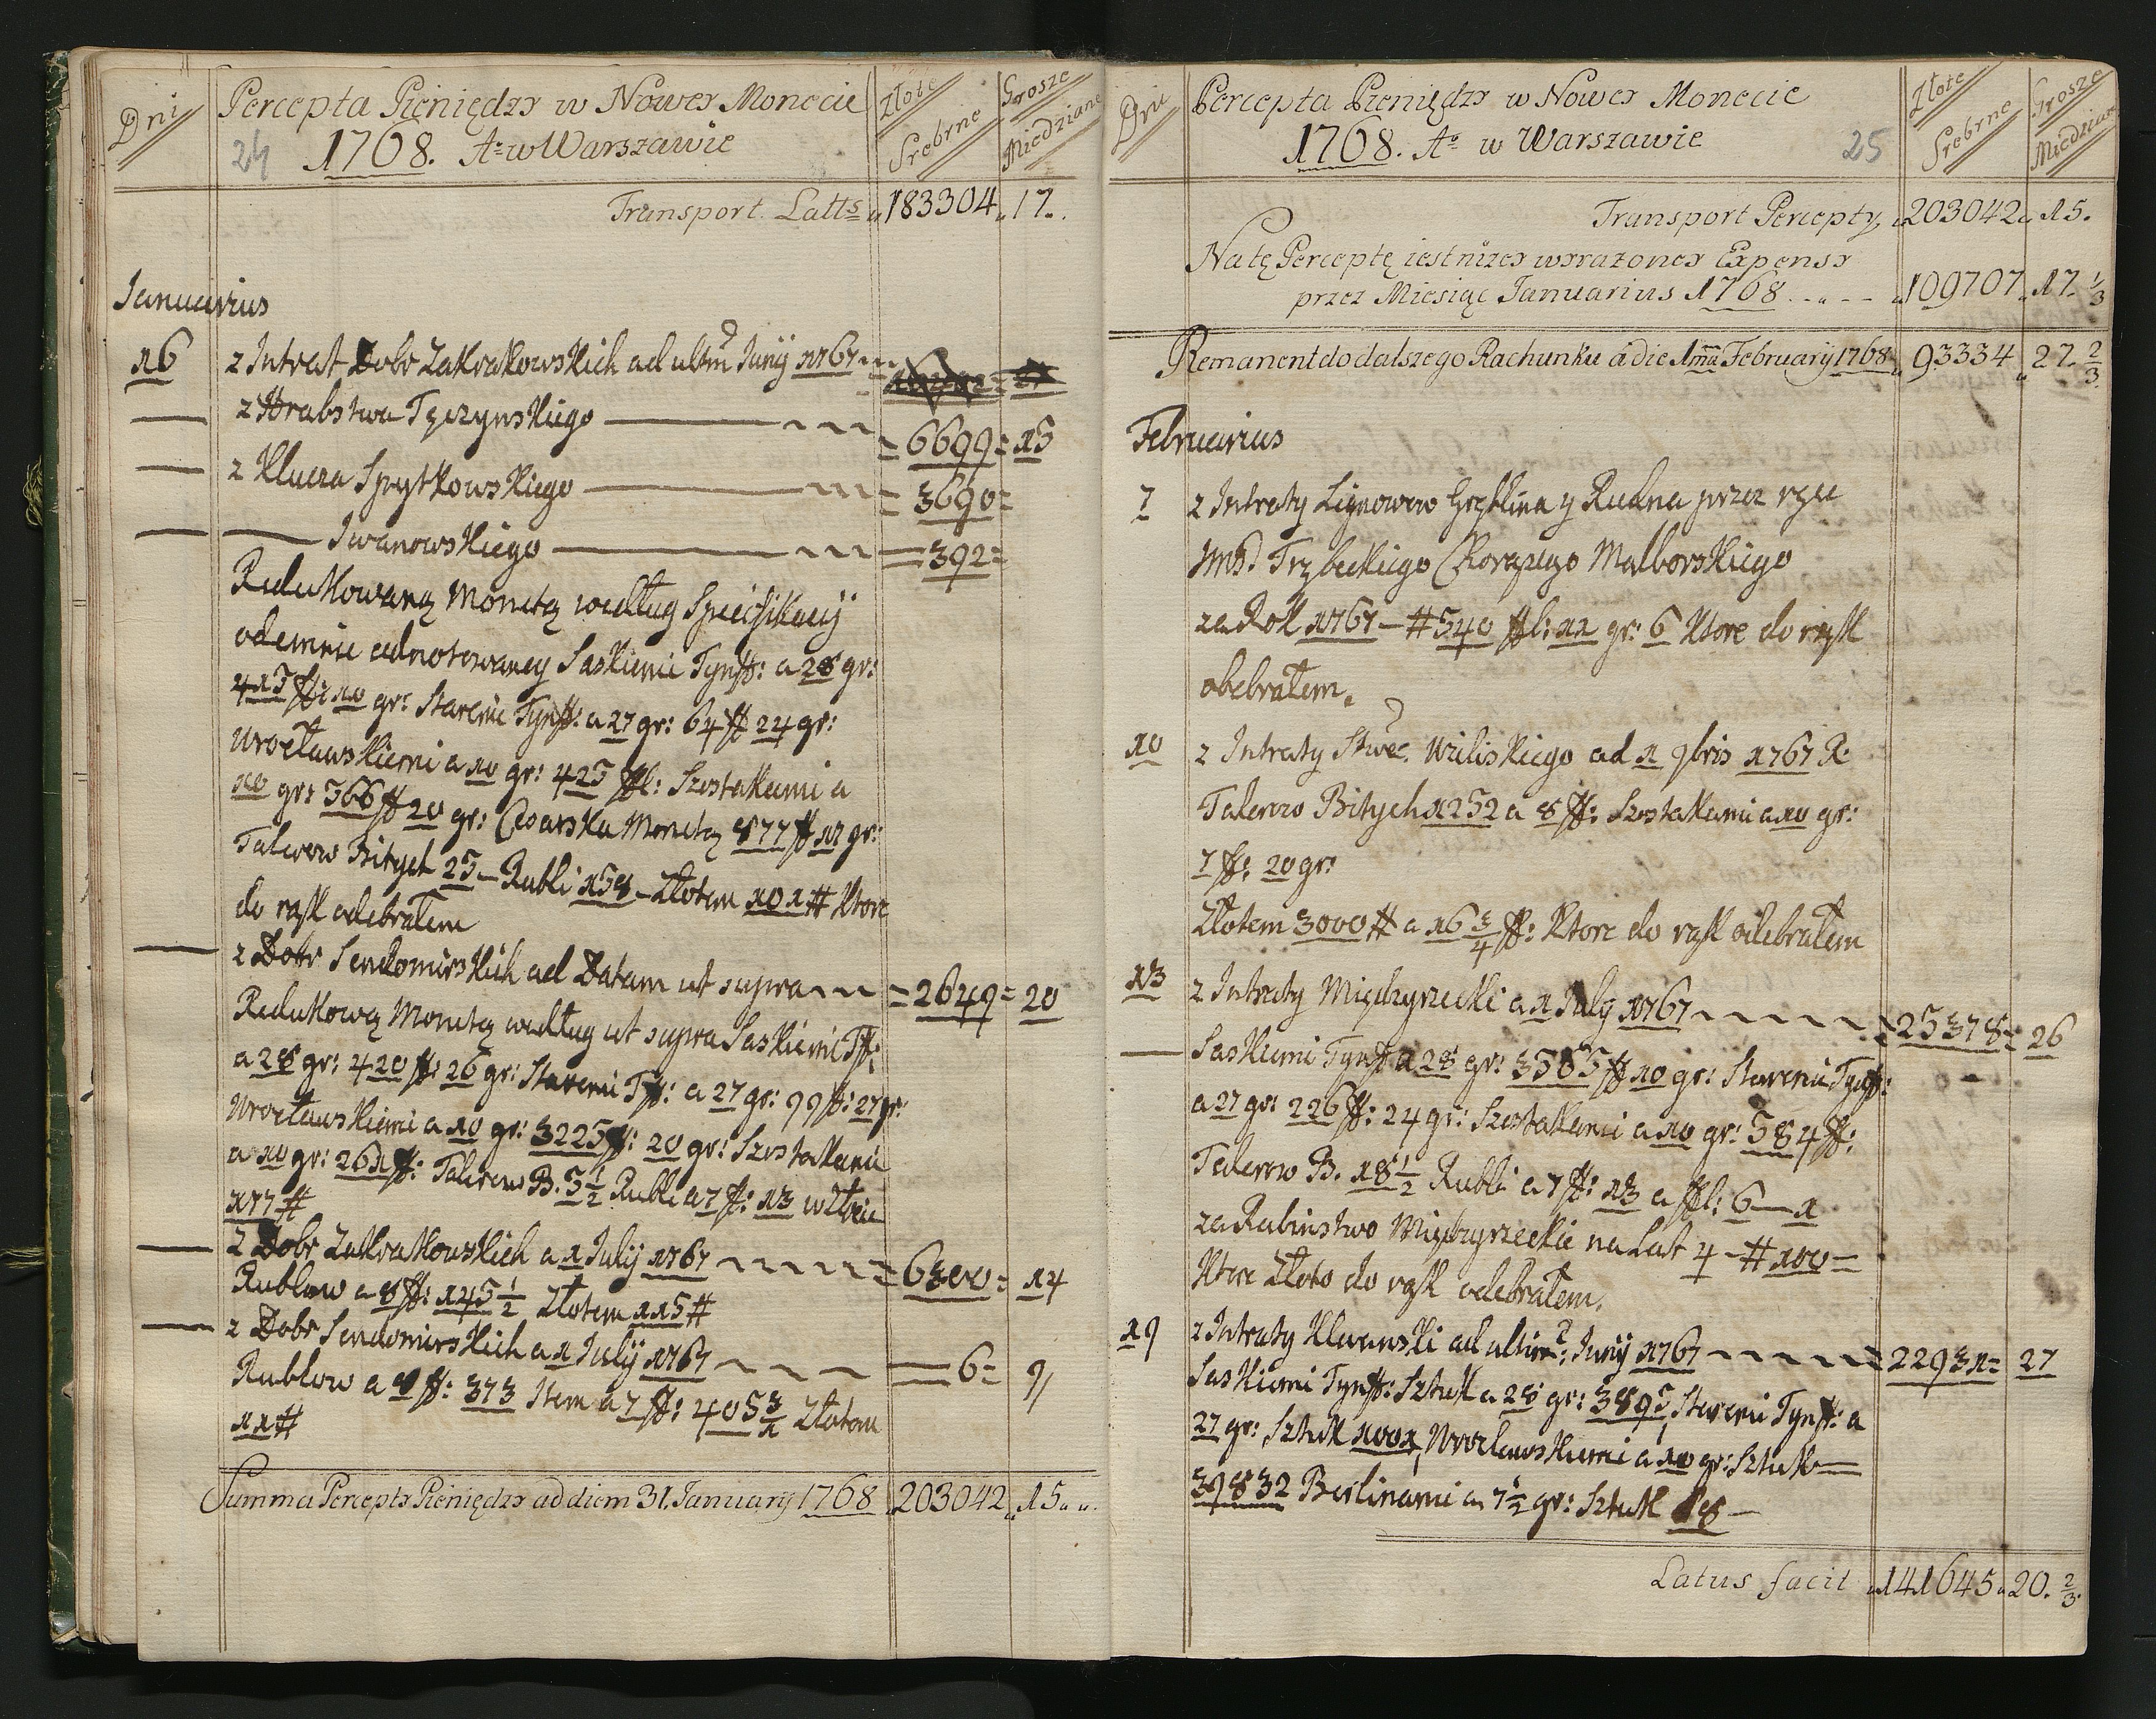 Dni
Percepta Pieniędzy w Nowey Monecie
24 1768. Aº w Warszawie
Złote Srebrne
Grosze Miedziane
Transport Latts 183304 17.
Januarius
16 z Intrat Dobr Zakrakowskich ad ultm Junij 1767
z Hrabstwa Tęczynskiego = 6699 = 15
z Klucza Spytkowskiego = 3690 =
Iwanowskiego = 392 =
Redukowaną Monetą według Specifikacij
odemnie adnotowaney Saskiemi Tynff: a 28 gr:
415 ff: 10 gr: Staremi Tynff: a 27 gr: 64 ff 24 gr:
Wrocławskiemi a 10 gr: 425 ffl: Szostakami a
10 gr: 366 ff 20 gr: Cesarską Monetą 877 ff 17 gr:
Talerow Bitych 25 – Rubli 158 – Złotem 101 # Ktore
do rąk odebrałem
z Dobr Sendomirskich ad Datam ut supra = 2649 = 20
Redukową Monetą według ut supra Saskiemi Tff:
a 28 gr: 420 ff: 26 gr: Staremi Tff: a 27 gr: 99 ff: 27 gr:
Wrocławskiemi a 10 gr: 3225 ff: 20 gr: Szostakami
a 10 gr: 261 ff: Talerow B. 5 1/2 Rubli a 7 ff: 13 w Złocie
177 #
z Dobr Zakrakowskich a 1 Julij 1767 = 6300 = 14
Rublow a 8 ff: 145 1/2 Złotem 115 #
z Dobr Sendomirskich a 1 Julij 1767 = 6 = 9
Rublow a 8 ff: 373 Item a 7 ff: 405 3/1 Złotem
11 #
Summa Percepty Pieniędzy ad diem 31. January 1768 203042 15.
Dni
Percepta Pieniędzy w Nowey Monecie
1768. Aº w Warszawie 25
Złote Srebrne
Grosze Miedziane
Transport Percepty 203042 15.
Na tę Perceptę iest niżey wyrażoney Expensy
przez Miesiąc Januarius 1768 109707 17. 1/3
Remanent do dalszego Rachunku á die 1ma February 1768 93334 27. 2/3
Februarius
7 z Intraty Lignowow y Rudna przez ręce
Trzybeckiego Chorążego Malborskiego
za Rok 1767 – # 540 ffl: 12 gr: 6 Ktore do rąk
obebrałem.
10 z Intraty Stwa Wiliskiego ad 1 9bris 1767 R:
Talerow Bitych 1252 a 8 ff: Szostakami a 10 gr:
7 ff: 20 gr:
Złotem 3000 # a 16 3/4 ff: Ktore do rąk odebrałem
13 z Intraty Międzyrzecki a 1 July 1767 = 25378 = 26
Saskiemi Tynff a 28 gr: 3585 ff 10 gr: Staremi Tynff:
a 27 gr: 226 ff: 24 gr: Szostakami a 10 gr: 584 ff:
Talerow B. 18 1/2 Rubli a 7 ff: 13 a ffl: 6 – 1
za Rabinstwo Międzyrzeckie na Lat 4 – # 100 –
Ktore Złoto do rąk odebrałem.
19 z Intraty Klwanski ad ultim: Junij 1767 = 22931 = 27
Saskiemi Tynff: Sztuk a 28 gr: 3895, Staremi Tynff: a
27 gr: Sztuk 1001, Wrocławskiemi a 10 gr: Sztuk
39832 Berlinami a 7 1/2 gr: Sztuk 18 –
Latus facit 141645 20. 2/3